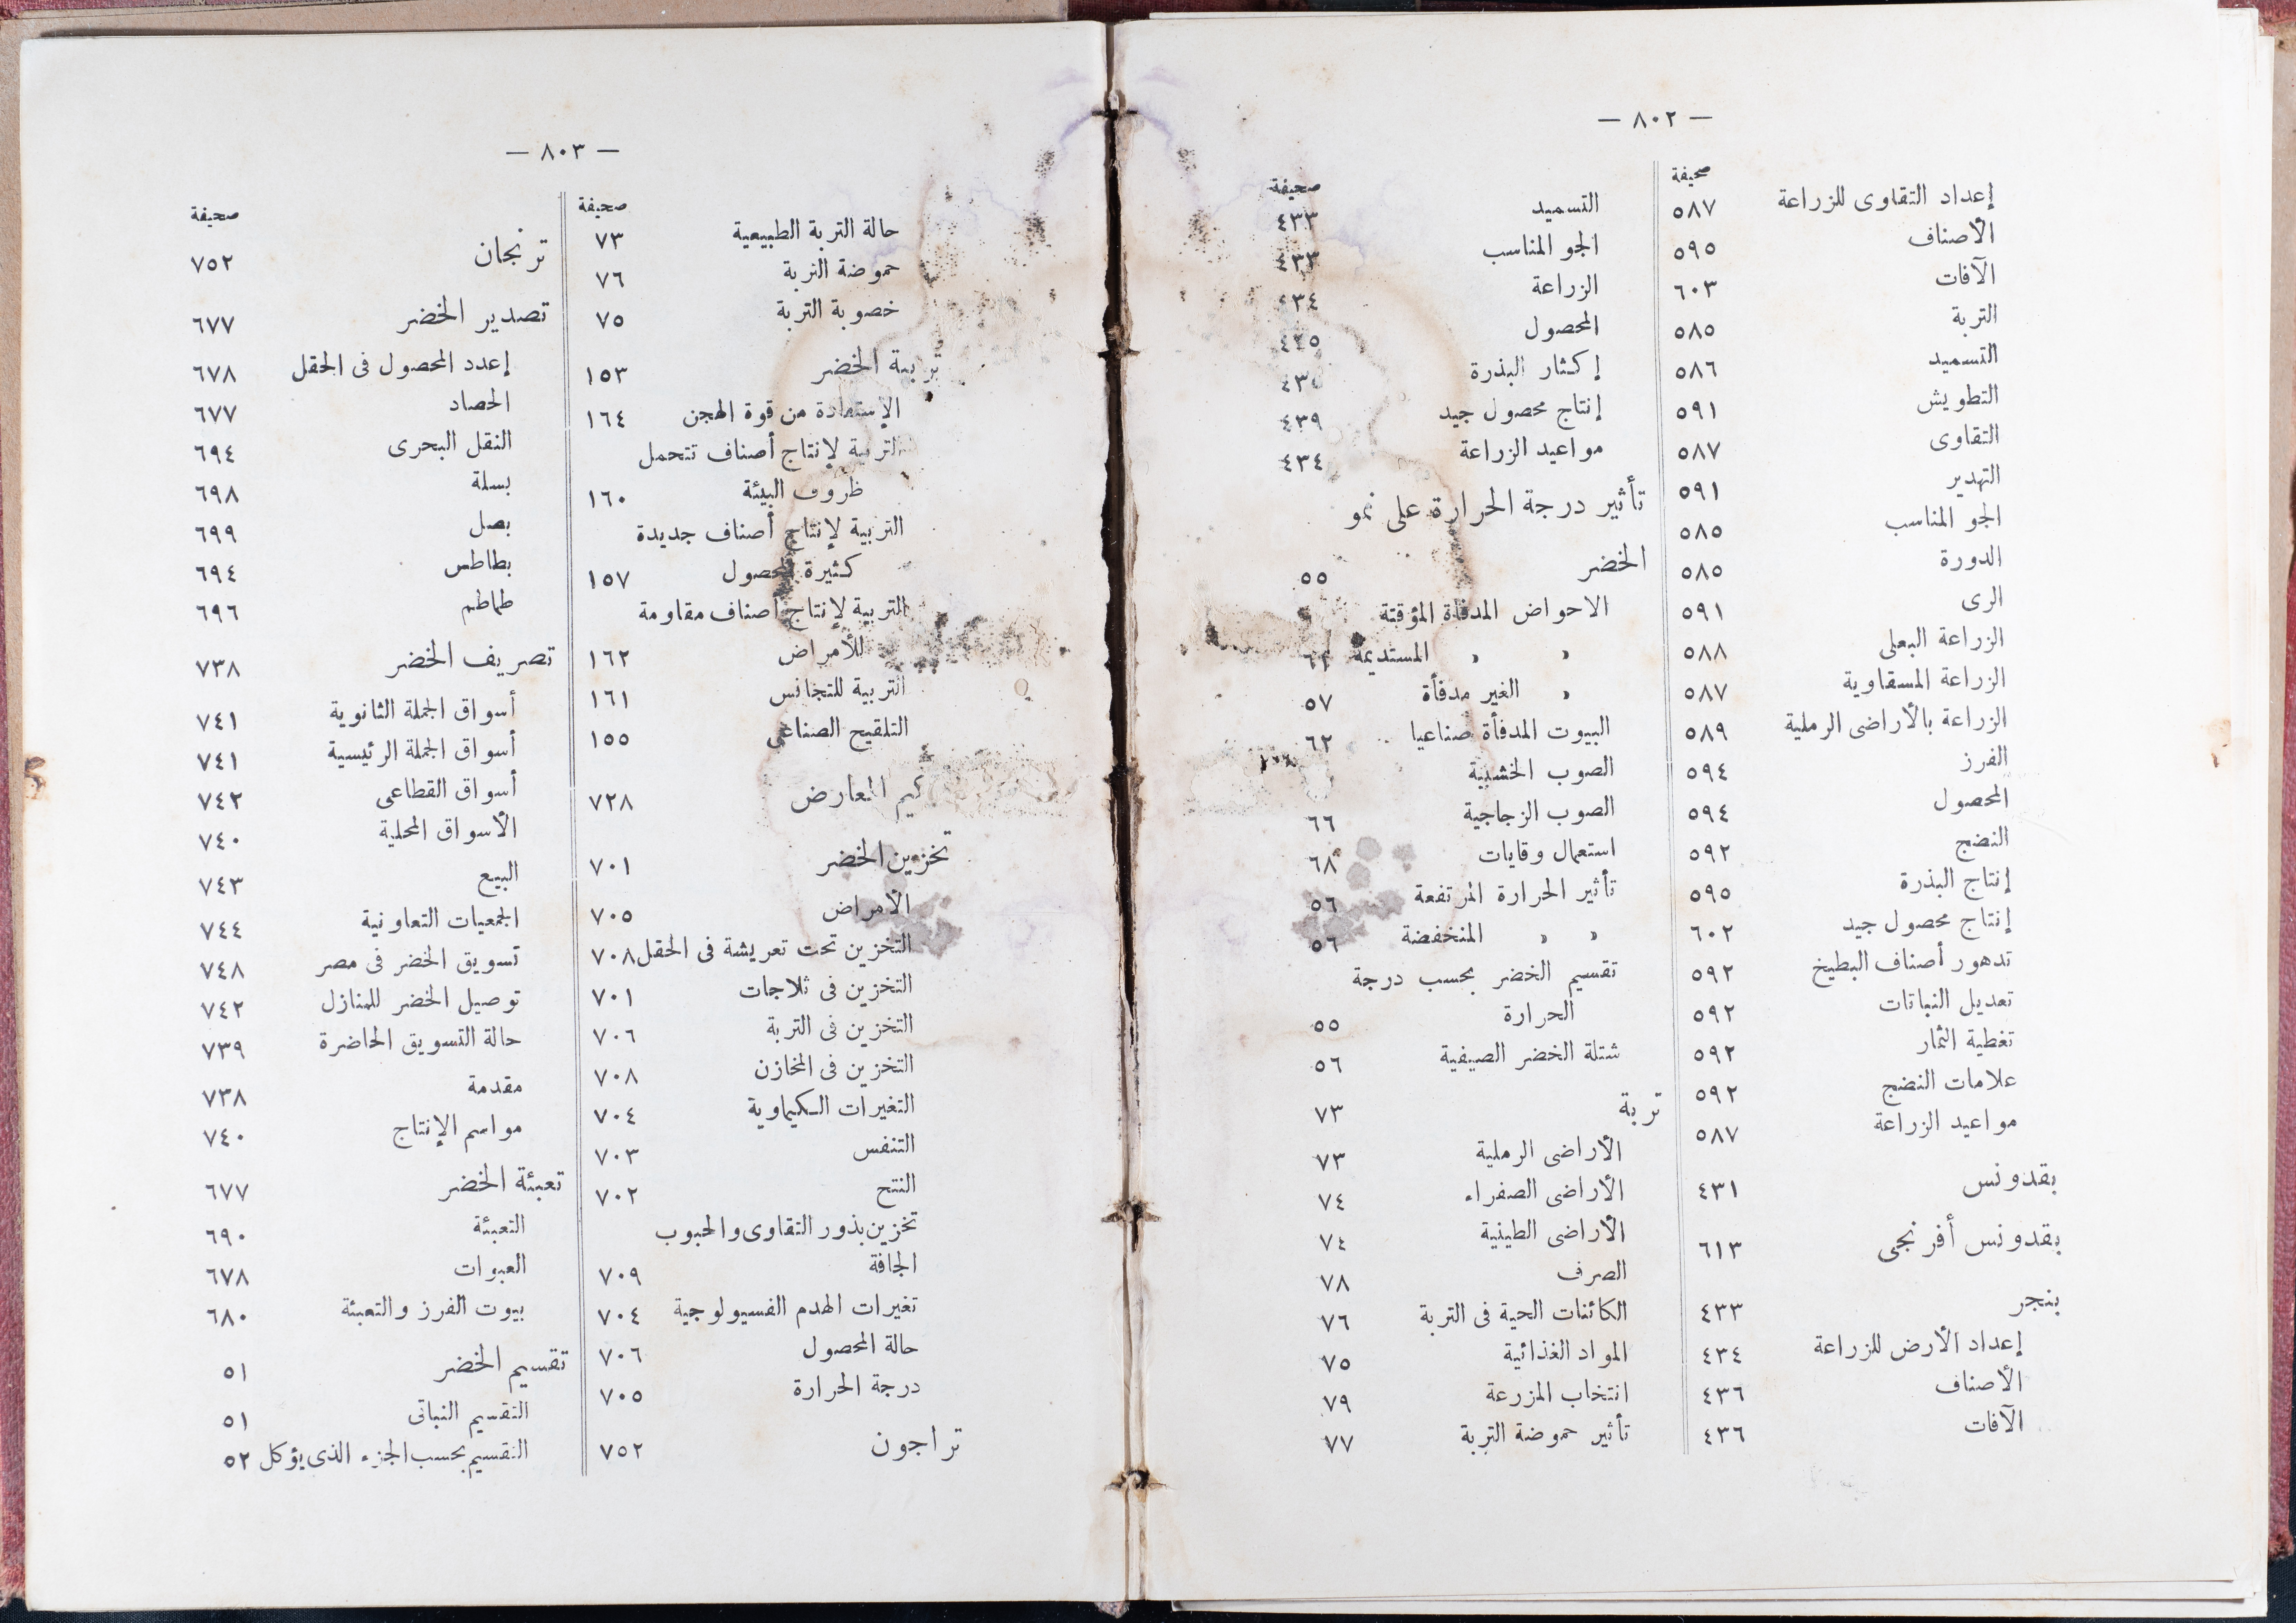 — ٨٠٢ —
صحيفة
إعداد التقاوى للزراعة ٥٨٧
الأصناف ٥٩٥
الآفات ٦٠٣
التربة ٥٨٥
التسميد ٥٨٦
التطويش ٥٩١
التقاوى ٥٨٧
التهدير ٥٩١
الجو المناسب ٥٨٥
الدورة ٥٨٥
الرى ٥٩١
الزراعة البعلى ٥٨٨
الزراعة المسقاوية ٥٨٧
الزراعة بالأراضى الرملية ٥٨٩
الفرز ٥٩٤
المحصول ٥٩٤
النضج ٥٩٢
إنتاج البذرة ٥٩٥
إنتاج محصول جيد ٦٠٢
تدهور أصناف البطيخ ٥٩٢
تعديل النباتات ٥٩٢
تغطية الثمار ٥٩٢
علامات النضج ٥٩٢
مواعيد الزراعة ٥٨٧
بقدونس ٤٣١
بقدونس أفرنجى ٦١٣
بنجر ٤٣٣
إعداد الأرض للزراعة ٤٣٤
الأصناف ٤٣٦
الآفات ٤٣٦
صحيفة
التسميد ٤٣٣
الجو المناسب ٤٣٣
الزراعة ٤٣٤
المحصول
إكثار البذرة
إنتاج محصول جيد ٤٣٩
مواعيد الزراعة ٤٣٤
تأثير درجة الحرارة على نمو
الخضر ٥٥
الاحواض المدفأة المؤقتة
» » المستديمة
» الغير مدفأة ٥٧
البيوت المدفأة صناعيا ٦٢
الصوب الخشبية
الصوب الزجاجية ٦٦
استعمال وقايات ٦٨
تأثير الحرارة المرتفعة ٥٦
» » المنخفضة ٥٦
تقسيم الخضر بحسب درجة
الحرارة ٥٥
شتلة الخضر الصيفية ٥٦
تربة ٧٣
الأراضى الرملية ٧٣
الأراضى الصفراء ٧٤
الأراضى الطينية ٧٤
الصرف ٧٨
الكائنات الحية فى التربة ٧٦
المواد الغذائية ٧٥
انتخاب المزرعة ٧٩
تأثير حموضة التربة ٧٧
— ٨٠٣ —
صحيفة
حالة التربة الطبيعية ٧٣
حموضة التربة ٧٦
خصوبة التربة ٧٥
تربية الخضر ١٥٣
الإستفادة من قوة الهجن ١٦٤
التربية لإنتاج أصناف تتحمل
ظروف البيئة ١٦٠
التربية لإنتاج أصناف جديدة
كثيرة المحصول ١٥٧
التربية لإنتاج أصناف مقاومة
للأمراض ١٦٢
التربية للتجانس ١٦١
التلقيح الصناعى ١٥٥
المعارض ٧٢٨
تخزين الخضر ٧٠١
الأمراض ٧٠٥
التخزين تحت تعريشة فى الحقل ٧٠٨
التخزين فى ثلاجات ٧٠١
التخزين فى التربة ٧٠٦
التخزين فى المخازن ٧٠٨
التغيرات الكيماوية ٧٠٤
التنفس ٧٠٣
النتح ٧٠٢
تخزين بذور التقاوى والحبوب
الجافة ٧٠٩
تغيرات الهدم الفسيولوجية ٧٠٤
حالة المحصول ٧٠٦
درجة الحرارة ٧٠٥
تراجون ٧٥٢
صحيفة
ترنجان ٧٥٢
تصدير الخضر ٦٧٧
إعدد المحصول فى الحقل ٦٧٨
الحصاد ٦٧٧
النقل البحرى ٦٩٤
بسلة ٦٩٨
بصل ٦٩٩
بطاطس ٦٩٤
طماطم ٦٩٦
تصريف الخضر ٧٣٨
أسواق الجملة الثانوية ٧٤١
أسواق الجملة الرئيسية ٧٤١
أسواق القطاعى ٧٤٢
الأسواق المحلية ٧٤٠
البيع ٧٤٣
الجمعيات التعاونية ٧٤٤
تسويق الخضر فى مصر ٧٤٨
توصيل الخضر للمنازل ٧٤٢
حالة التسويق الحاضرة ٧٣٩
مقدمة ٧٣٨
مواسم الإنتاج ٧٤٠
تعبئة الخضر ٦٧٧
التعبئة ٦٩٠
العبوات ٦٧٨
بيوت الفرز والتعبئة ٦٨٠
تقسيم الخضر ٥١
التقسيم النباتى ٥١
التقسيم بحسب الجزء الذى يؤكل ٥٢